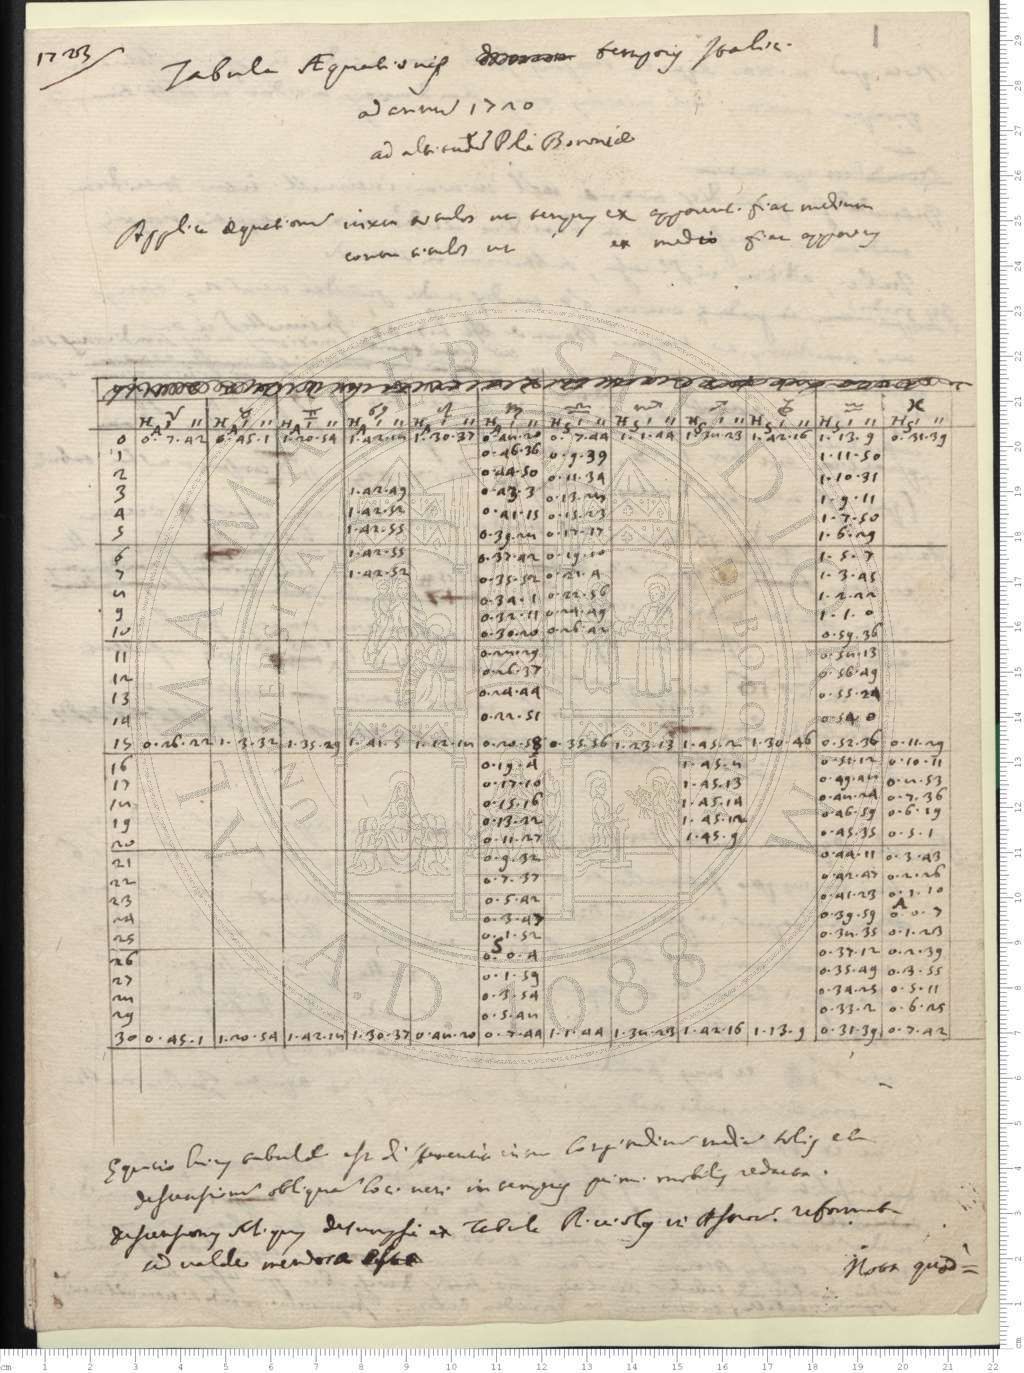 1
Tabula Æquationis temporis Italic.
ad annum 1720
ad altitud. Poli Bononiæ
Applica æquationem iuxta titulos ut tempus ex apparent. fiat medium
contra titulos ut ex medio fiat apparens
♈ ♉ ♊ ♋ ♌ ♍ ♎ ♏ ♐ ♑ ♒ ♓
H ' " H ' " H ' " H ' " H ' " H ' " H ' " H ' " H ' " H ' " H ' " H ' "
A A A A A A S S S S S S
0 0.7.42 0.45.1 1.20.54 1.42.18 1.30.37 0.48.20 0.7.44 1.1.44 1.38.23 1.42.16 1.13.9 0.31.39
1 0.46.36 0.9.39 1.11.50
2 0.44.50 0.11.34 1.10.31
3 1.42.49 0.43.3 0.13.28 1.9.11
4 1.42.52 0.41.15 0.15.23 1.7.50
5 1.42.55 0.39.28 0.17.17 1.6.29
6 1.42.55 0.37.42 0.19.10 1.5.7
7 1.42.52 0.35.52 0.21.4 1.3.45
8 0.34.1 0.22.56 1.2.22
9 0.32.11 0.24.49 1.1.0
10 0.30.20 0.26.42 0.59.36
11 0.28.29 0.58.13
12 0.26.37 0.56.49
13 0.24.44 0.55.24
14 0.22.51 0.54.0
15 0.26.22 1.3.32 1.35.29 1.41.5 1.12.18 0.20.58 0.35.56 1.23.13 1.45.2 1.30.46 0.52.36 0.11.29
16 0.19.4 1.45.8 0.51.12 0.10.11
17 0.17.10 1.45.13 0.49.48 0.8.53
18 0.15.16 1.45.14 0.48.24 0.7.36
19 0.13.22 1.45.12 0.46.59 0.6.19
20 0.11.27 1.45.9 0.45.35 0.5.1
21 0.9.32 0.44.11 0.3.43
22 0.7.37 0.42.47 0.2.26
23 0.5.42 0.41.23 0.1.10
A
24 0.3.47 0.39.59 0.0.7
25 0.1.52 0.38.35 0.1.23
S
26 0.0.4 0.37.12 0.2.39
27 0.1.59 0.35.49 0.3.55
28 0.3.54 0.34.25 0.5.11
29 0.5.48 0.33.2 0.6.25
30 0.45.1 1.20.54 1.42.18 1.30.37 0.48.20 0.7.44 1.1.44 1.38.23 1.42.16 1.13.9 0.31.39 0.7.42
Equatio huius tabulæ est differentia inter longitudinem mediam solis et
descensionem obliquam loci veri in tempus primi mobilis redacta.
descensiones obliquas desumpsi ex Tabula Riccioly in Astron. reformata
ad valde mendosa
Nota quod
ALMA MATER STUDIORUM
UNIVERSITAS
A.D. 1088
cm 1 2 3 4 5 6 7 8 9 10 11 12 13 14 15 16 17 18 19 20 21 22
29
28
27
26
25
24
23
22
21
20
19
18
17
16
15
14
13
12
11
10
9
8
7
6
5
4
3
2
1
cm